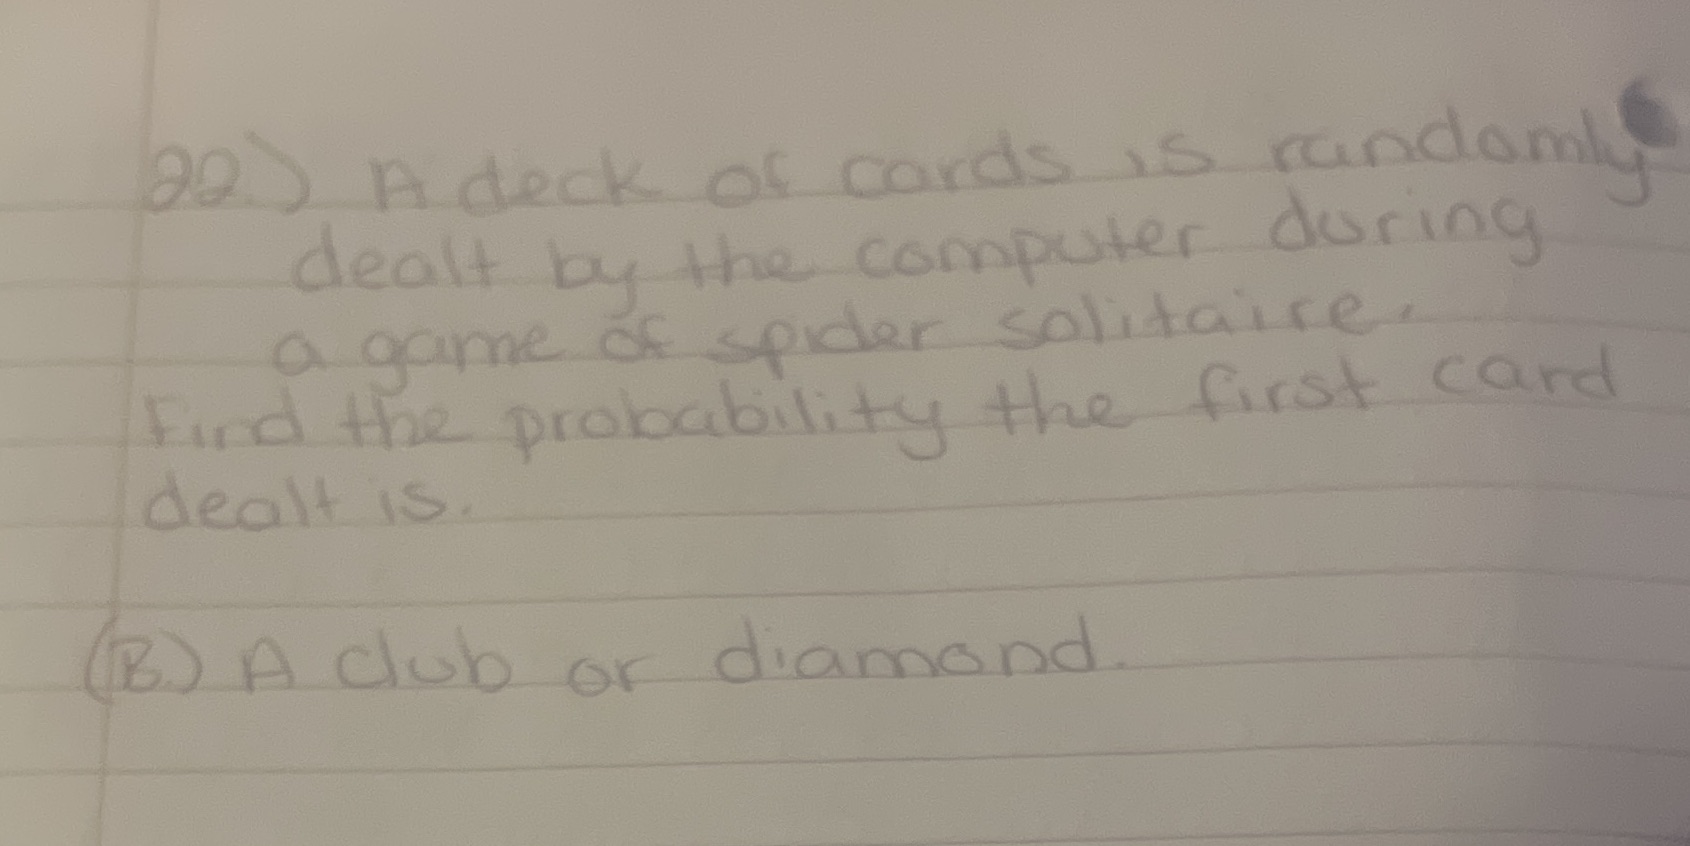 22.) A deck of cards is randomly
dealt by the computer during
a game of spider solitaire.
Find the probability the first card
dealt is.
(B.) A club or diamond.